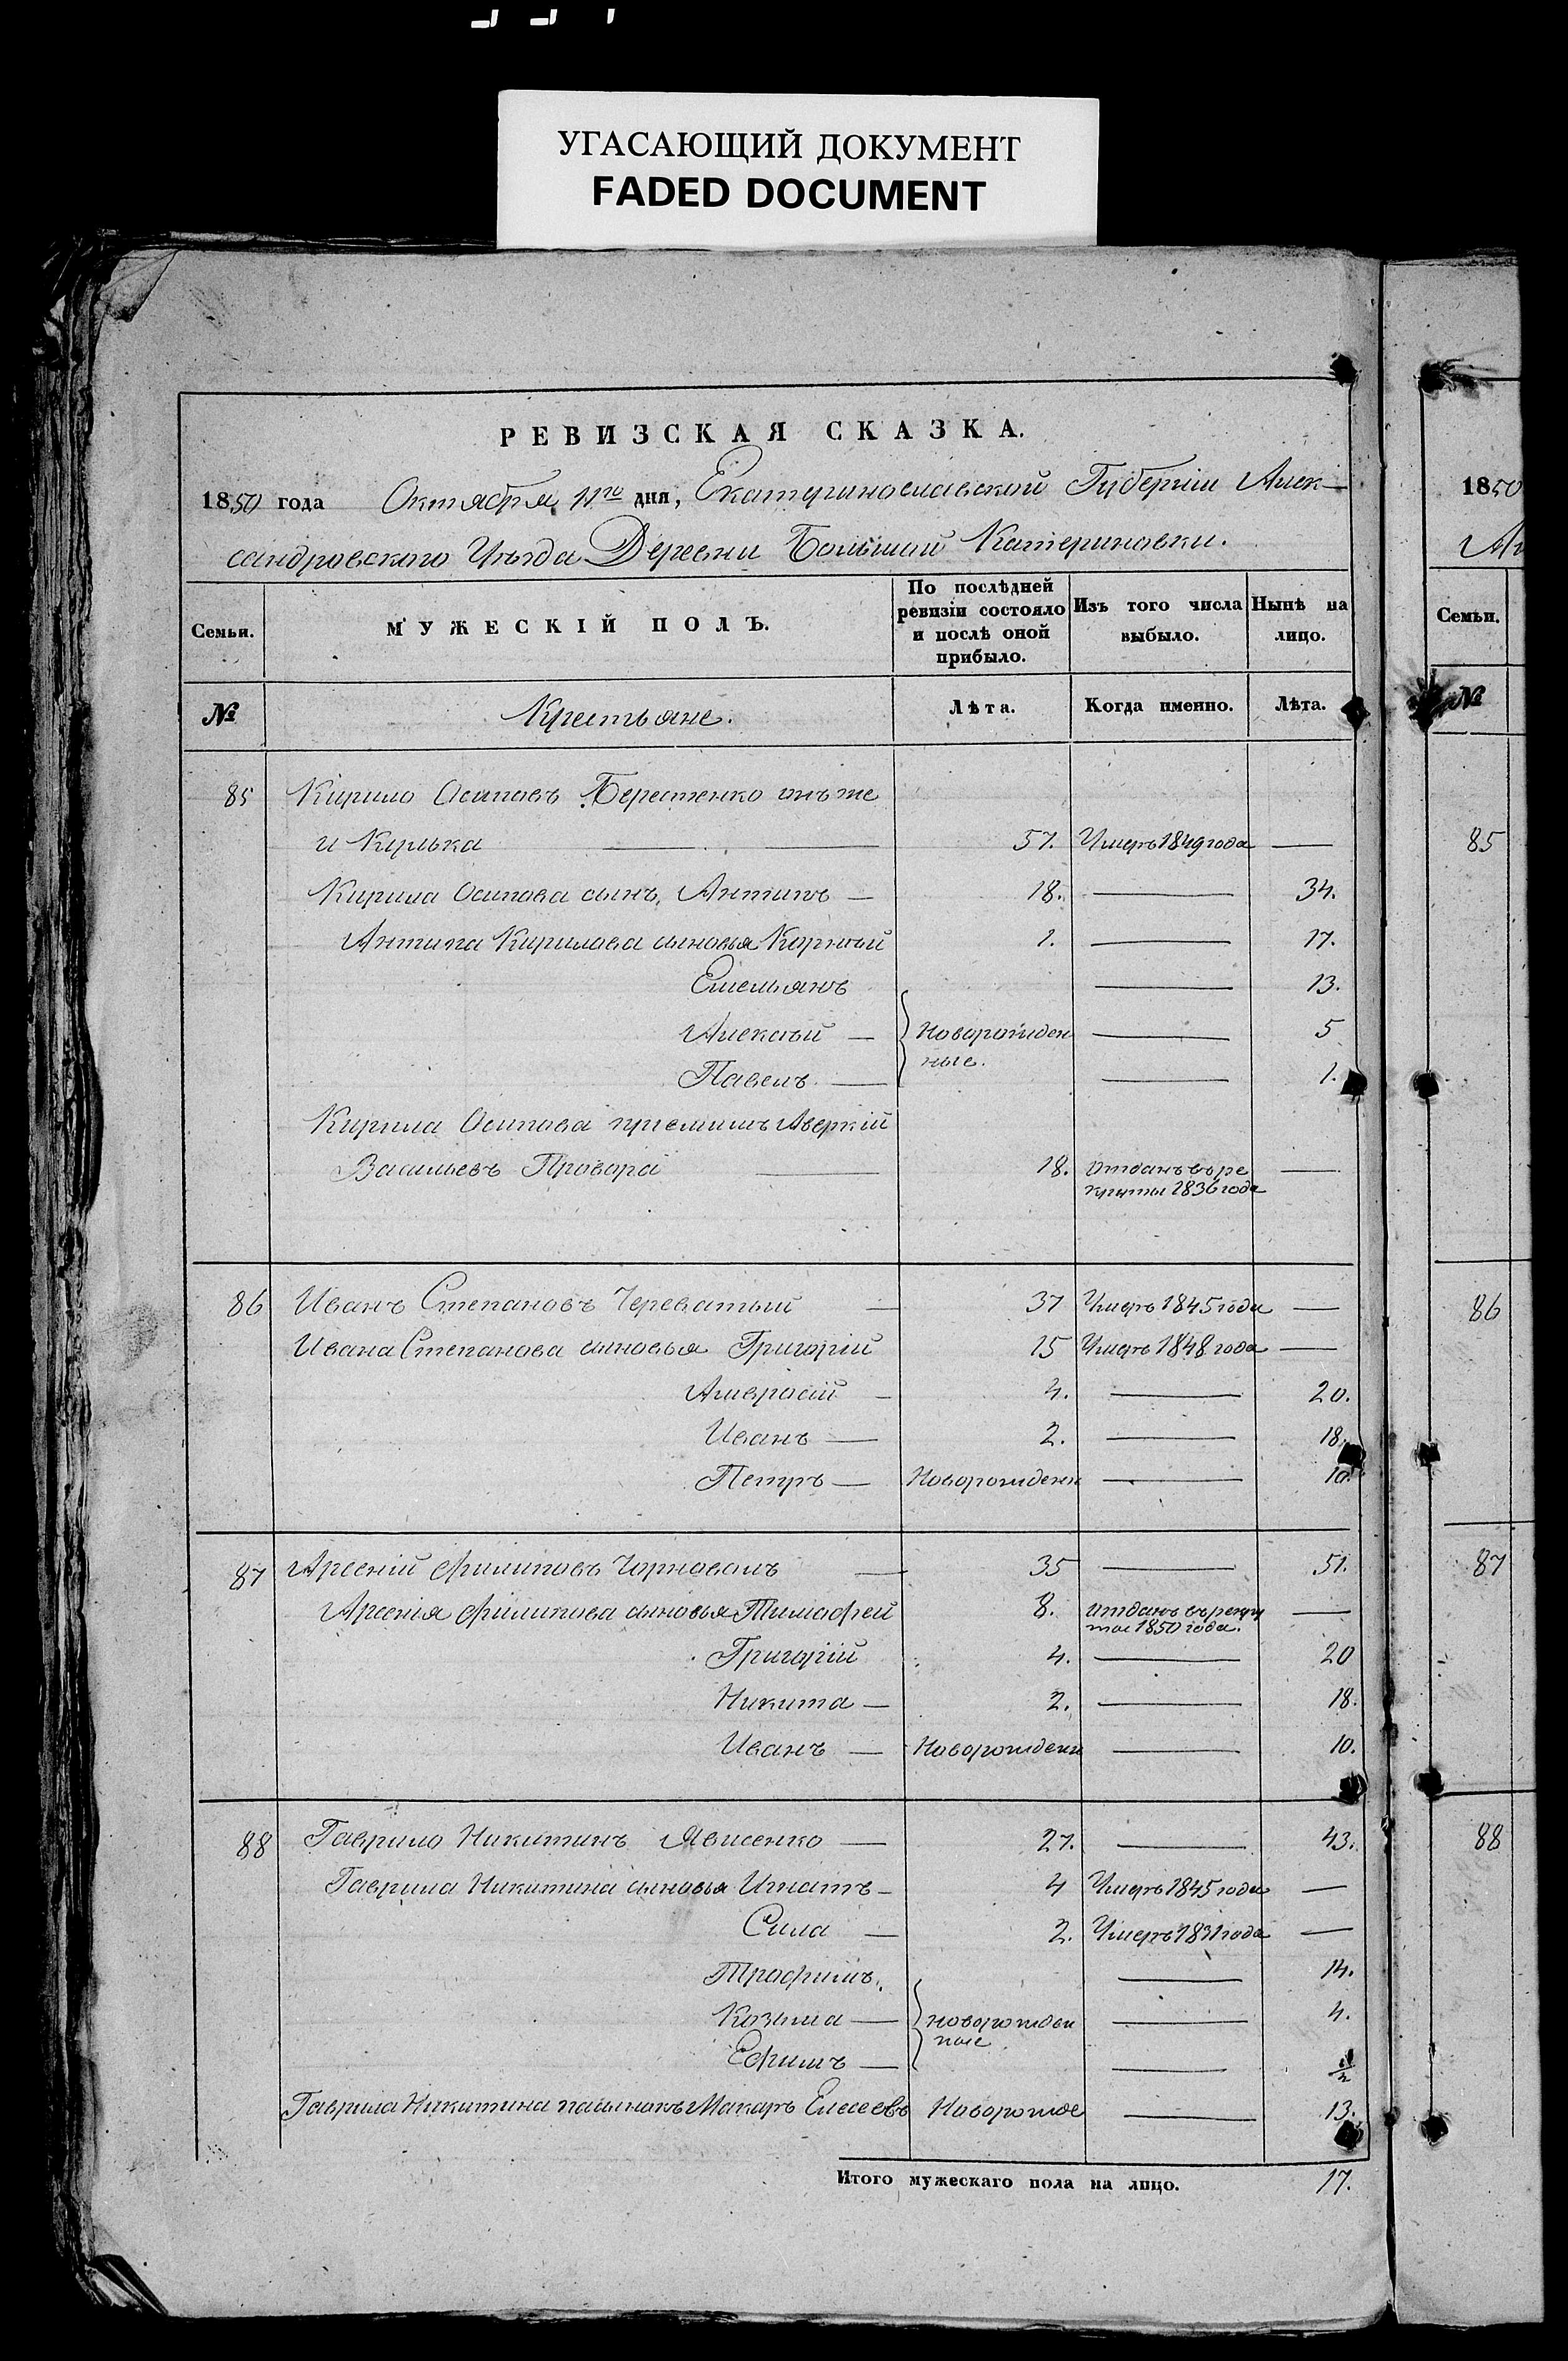 УГАСАЮЩИЙ ДОКУМЕНТ
FADED DOCUMENT
РЕВИЗСКАЯ СКАЗКА.
1850 года Октября 11го дня, Екатеринославской Губерніи Алек-
сандровского Уѣзда Деревни Большой Катериновки.
Семьи. МУЖЕСКІЙ ПОЛЪ. По послѣдней ревизіи состояло и послѣ оной прибыло. Изъ того числа выбыло. Нынѣ на лицо.
№ Крестьяне. Лѣта. Когда именно. Лѣта.
85 Кирило Осиповъ Берестенко онъ же
и Кулька — 57. Умеръ 1849 года —
Кирила Осипова сынъ, Антипъ — 18. — 34.
Антипа Кирилова сыновья Корнѣй 1. — 17.
Емельянъ — 13.
Алексѣй — Новорожден — 5
ные.
Павелъ — — 1.
Кирила Осипова приемышъ Аверкій
Васильевъ — 18. отданъ въ ре —
круты 1836 года
86 Иванъ Степановъ Череватый — 37 Умеръ 1845 года —
Ивана Степанова сыновья Григорій 15 Умеръ 1848 года —
Амвросій — 4. — 20.
Иванъ — 2. — 18.
Петръ — Новорожденн — 10.
87 Арсеній Филиповъ Чорновалъ — 35 — 51.
Арсенія Филипова сыновья Тимофей 8. отданъ въ рекру —
ты 1850 года.
Григорій 4. — 20
Никита — 2. — 18.
Иванъ — Новорожденн — 10.
88 Гаврило Никитинъ Явшенко — 27. — 43.
Гаврила Никитина сыновья Игнатъ — 4 Умеръ 1845 года —
Сила — 2. Умеръ 1831 года —
Трофимъ. — 14.
Козьма — новорожден — 4.
ные
Ефимъ — —
Гаврила Никитина пасынокъ Макаръ Елесеевъ Новорожде — 13.
Итого мужескаго пола на лицо. 17.
1850
Семьи.
№
85
86
87
88